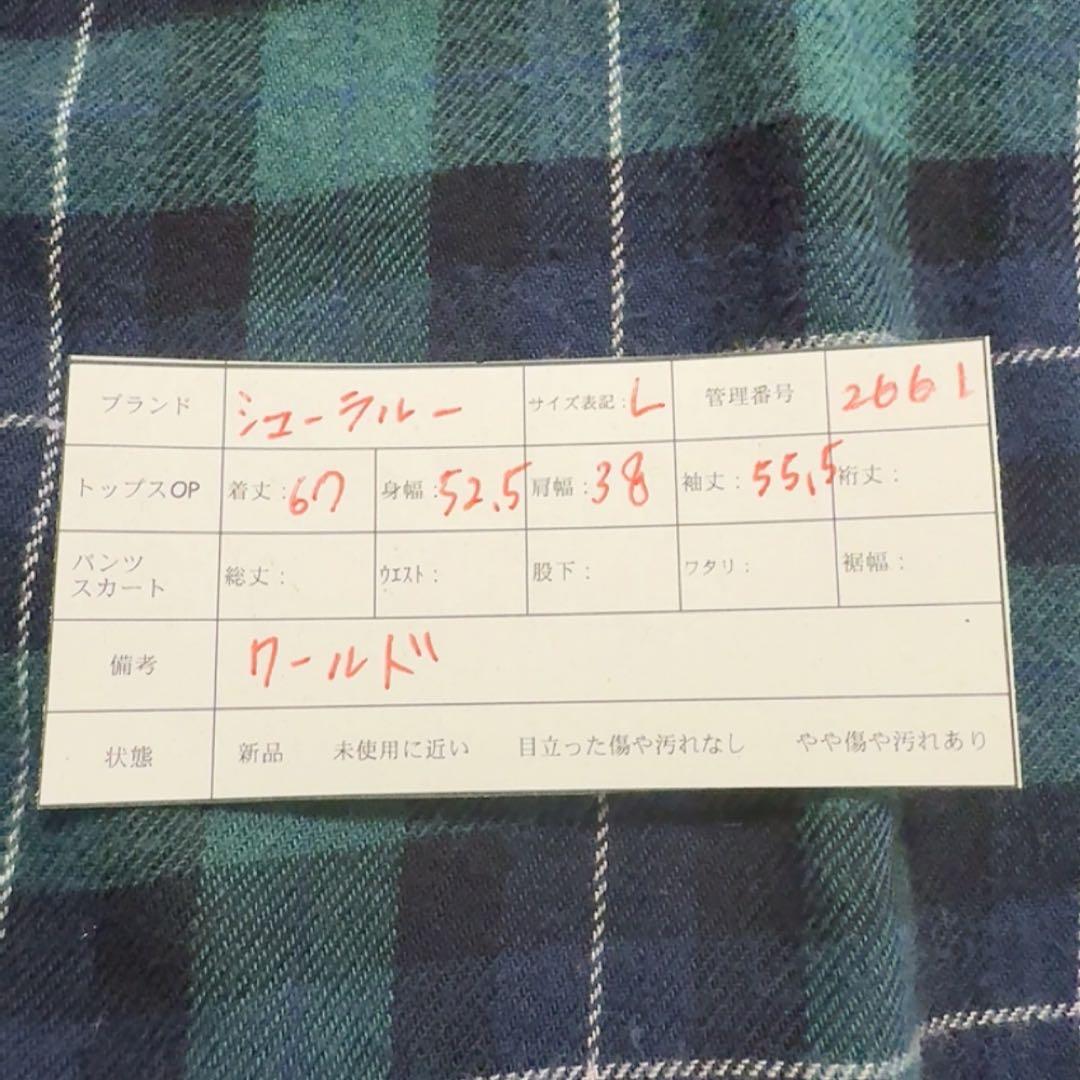 ブランド シューラルー サイズ表記:L 管理番号 2661
トップスOP 着丈:67 身幅:52.5 肩幅:38 袖丈:55.5 裄丈:
パンツ
スカート 総丈: ウエスト: 股下: ワタリ: 裾幅:
備考 ワールド
状態 新品 未使用に近い 目立った傷や汚れなし やや傷や汚れあり